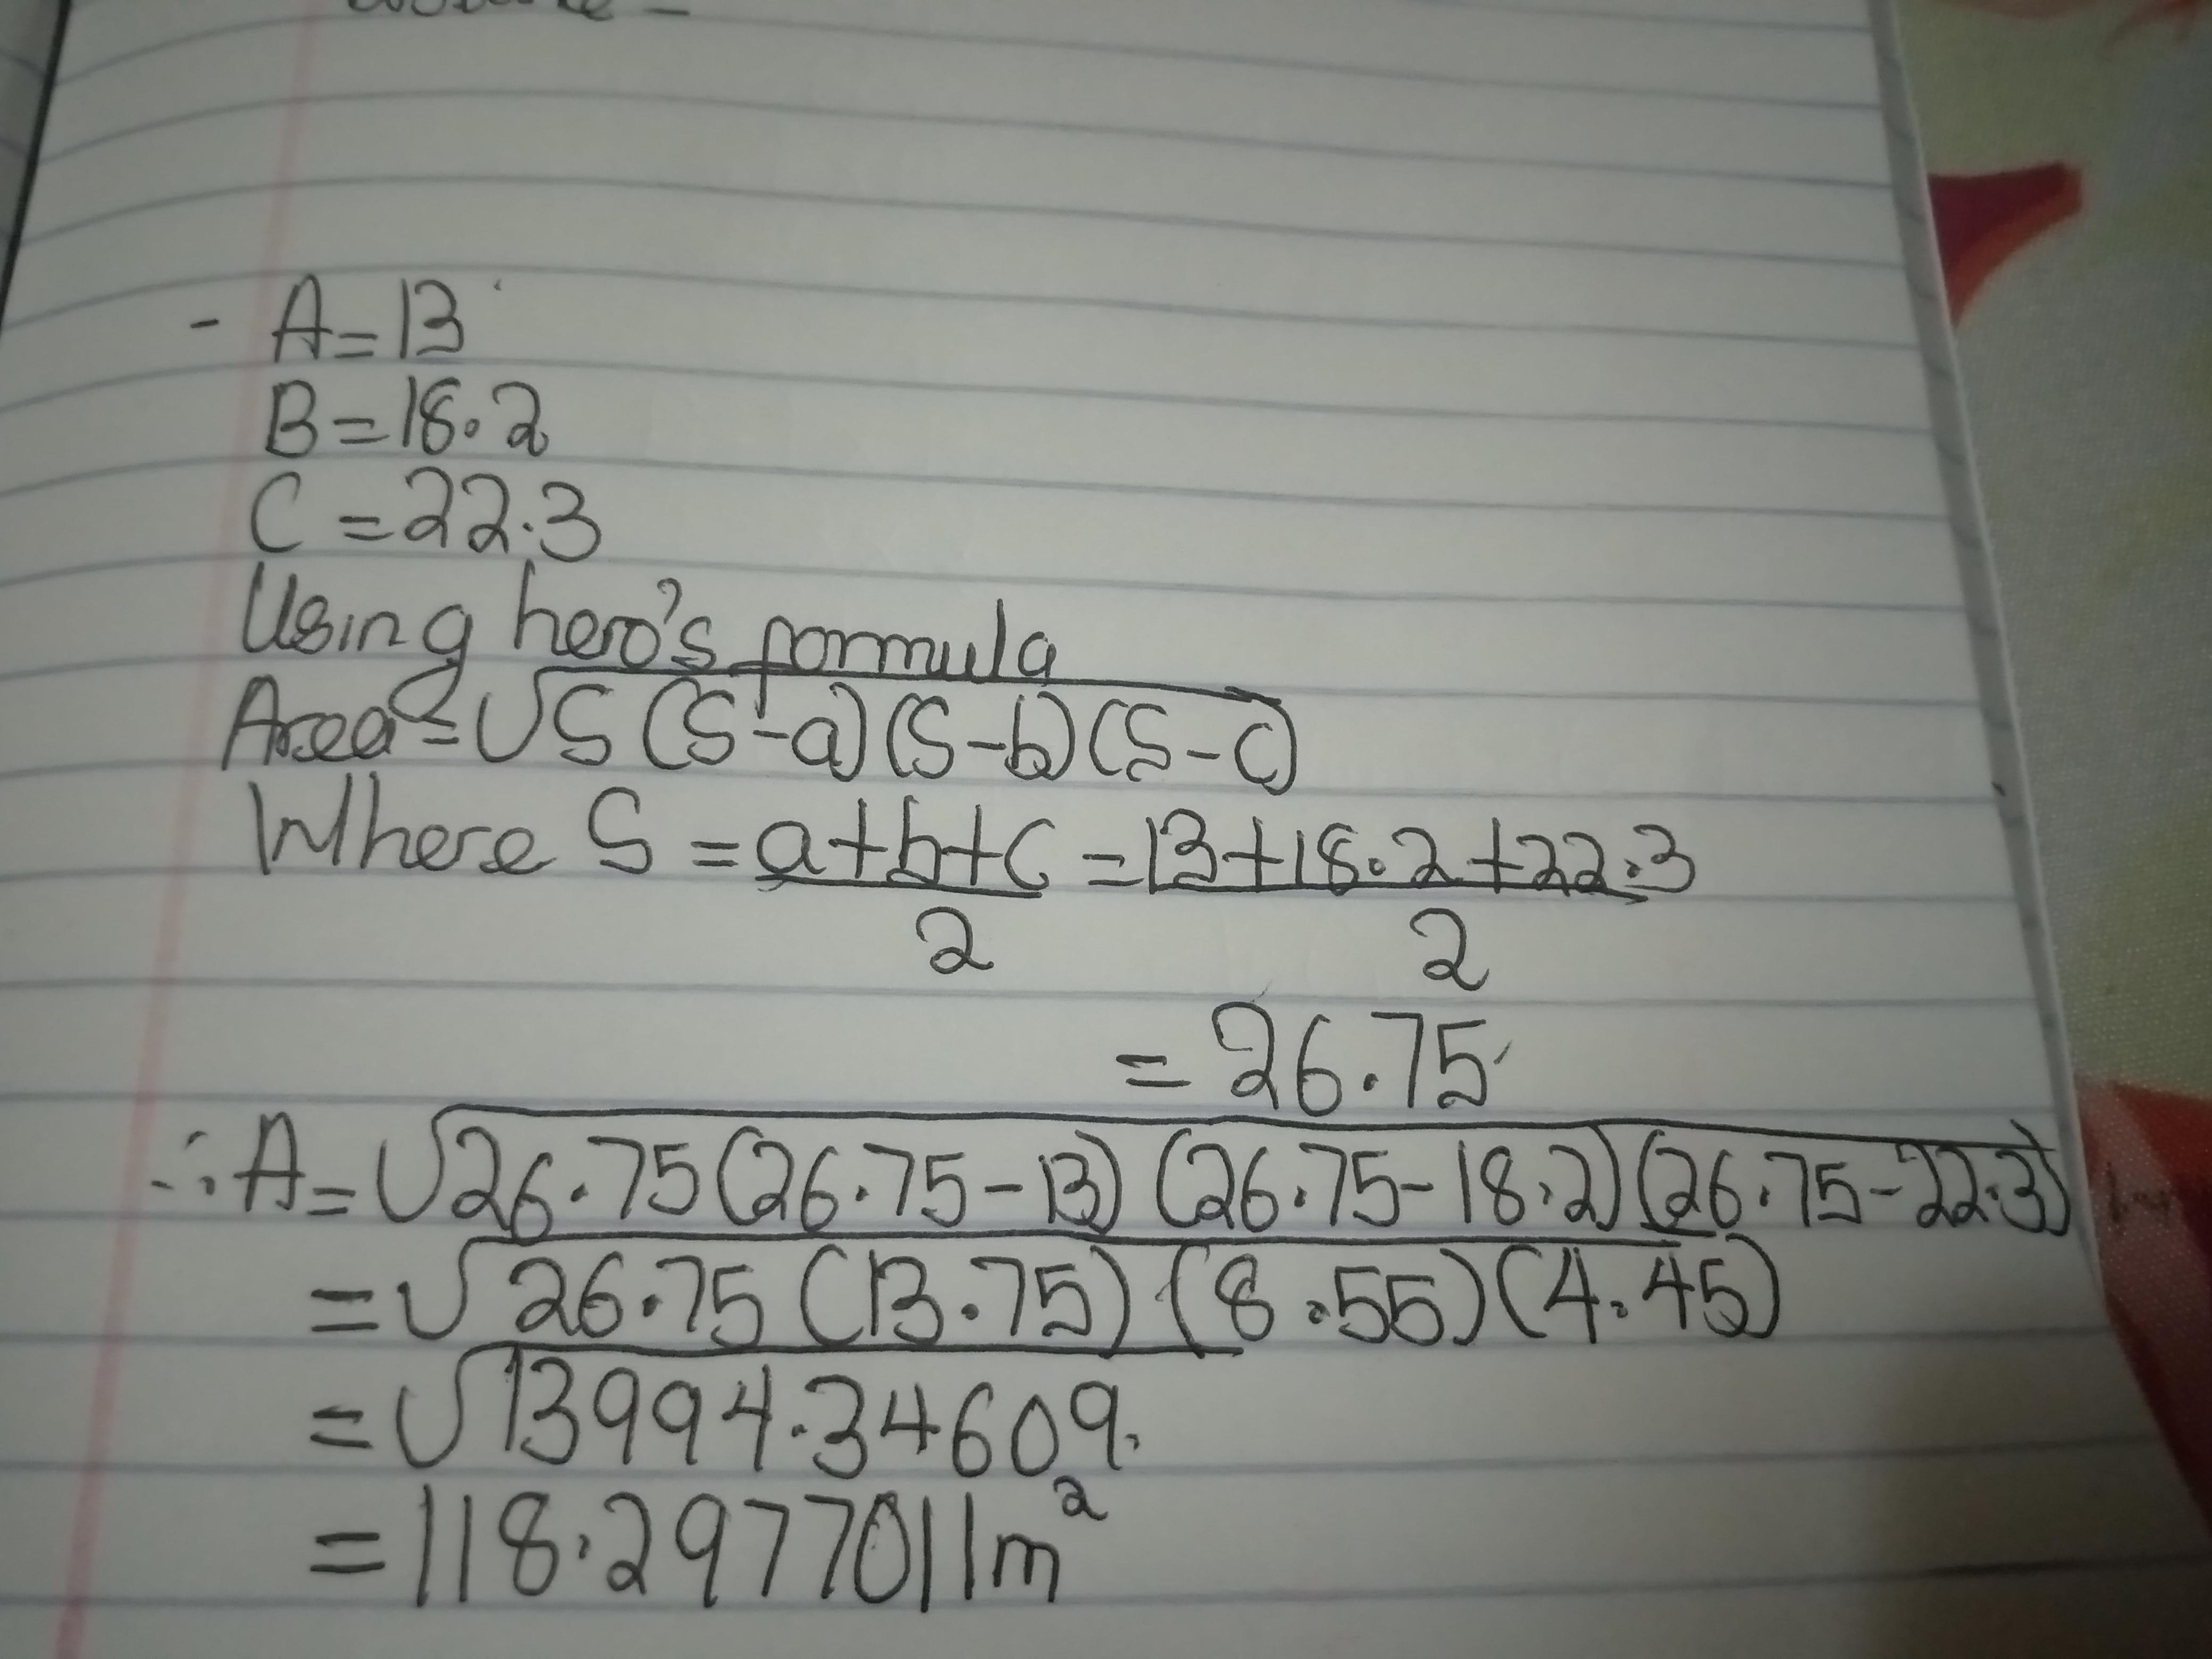 - A=13
B=18.2
C=22.3
Using hero's formula
Area=√S(S-a)(S-b)(S-c)
Where S=a+b+c=13+18.2+22.3
2 2
=26.75
∴A=√26.75(26.75-13)(26.75-18.2)(26.75-22.3)
=√26.75(13.75)(8.55)(4.45)
=√13994.34609.
=118.2977011m²